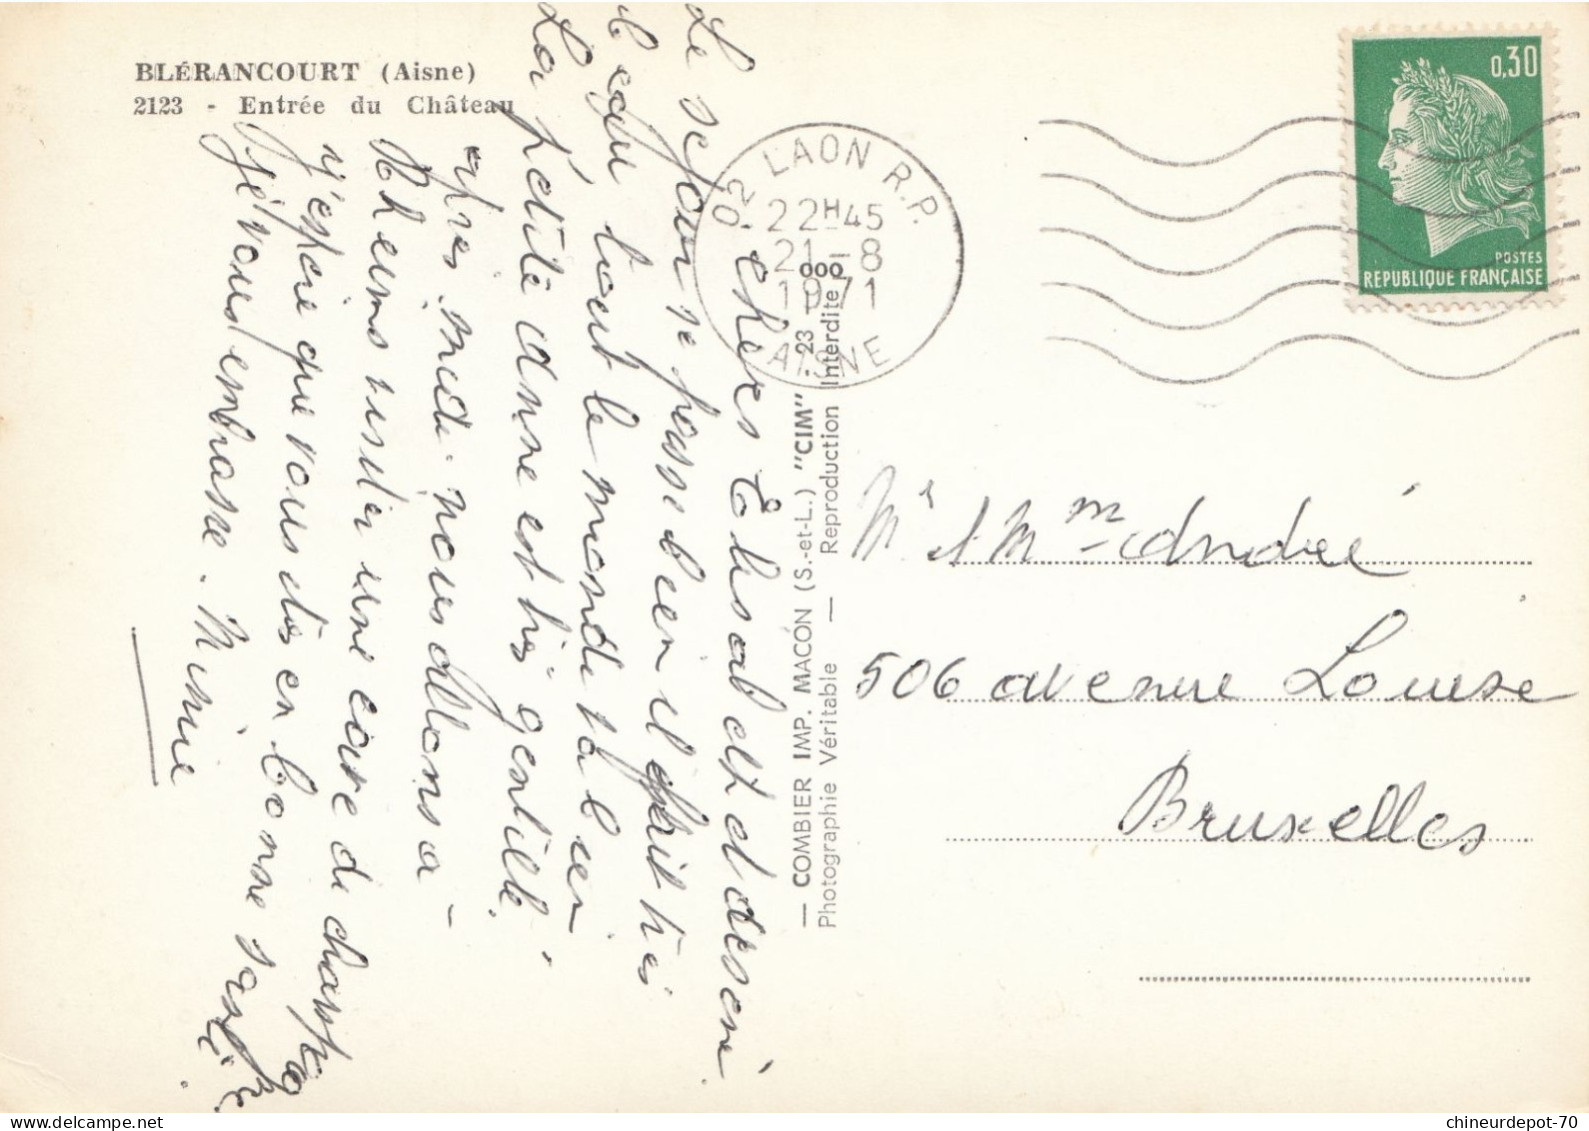 BLÉRANCOURT (Aisne)
2123 - Entrée du Château
02 LAON R.P.
22H45
21-8
1971
AISNE
0,30
POSTES
REPUBLIQUE FRANÇAISE
chères Elisabeth et
Le sejour se passe bien il fait très
tout le monde va bien
La petite Anne est très gentille.
après midi nous allons a
Rheims visiter une cave de champagne
j'espère que vous êtes en bonne santé
je vous embrasse. Ninie
— COMBIER IMP. MACON (S.-et-L.) "CIM"
Photographie Véritable — Reproduction Interdite
23 000
Mr et Mme André
506 avenue Louise
Bruxelles
chineurdepot-70